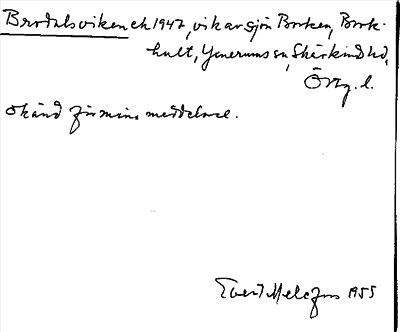 Brodalsviken ek 1947, vik av sjön Borken, Bork-
hult, Yxnerums sn, Skärkinds hd,
Östg. l.
Okänd för mina meddelare.
Evert Melefors 1955